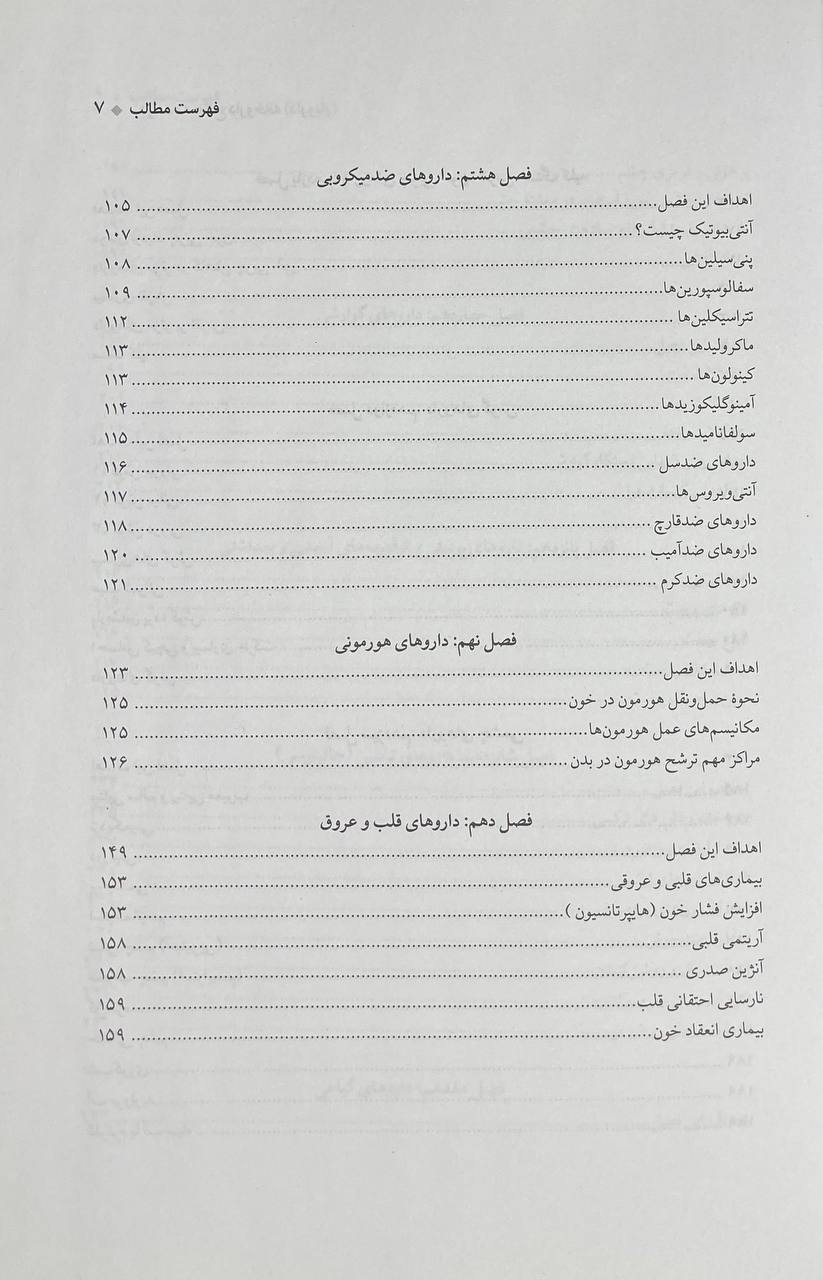 فهرست مطالب ◆ ۷
فصل هشتم: داروهای ضدمیکروبی
اهداف این فصل ۱۰۵
آنتی‌بیوتیک چیست؟ ۱۰۷
پنی‌سیلین‌ها ۱۰۸
سفالوسپورین‌ها ۱۰۹
تتراسیکلین‌ها ۱۱۲
ماکرولیدها ۱۱۳
کینولون‌ها ۱۱۳
آمینوگلیکوزیدها ۱۱۴
سولفانامیدها ۱۱۵
داروهای ضدسل ۱۱۶
آنتی‌ویروس‌ها ۱۱۷
داروهای ضدقارچ ۱۱۸
داروهای ضدآمیب ۱۲۰
داروهای ضدکرم ۱۲۱
فصل نهم: داروهای هورمونی
اهداف این فصل ۱۲۳
نحوۀ حمل‌ونقل هورمون در خون ۱۲۵
مکانیسم‌های عمل هورمون‌ها ۱۲۵
مراکز مهم ترشح هورمون در بدن ۱۲۶
فصل دهم: داروهای قلب و عروق
اهداف این فصل ۱۴۹
بیماری‌های قلبی و عروقی ۱۵۳
افزایش فشار خون (هایپرتانسیون ) ۱۵۳
آریتمی قلبی ۱۵۸
آنژین صدری ۱۵۸
نارسایی احتقانی قلب ۱۵۹
بیماری انعقاد خون ۱۵۹